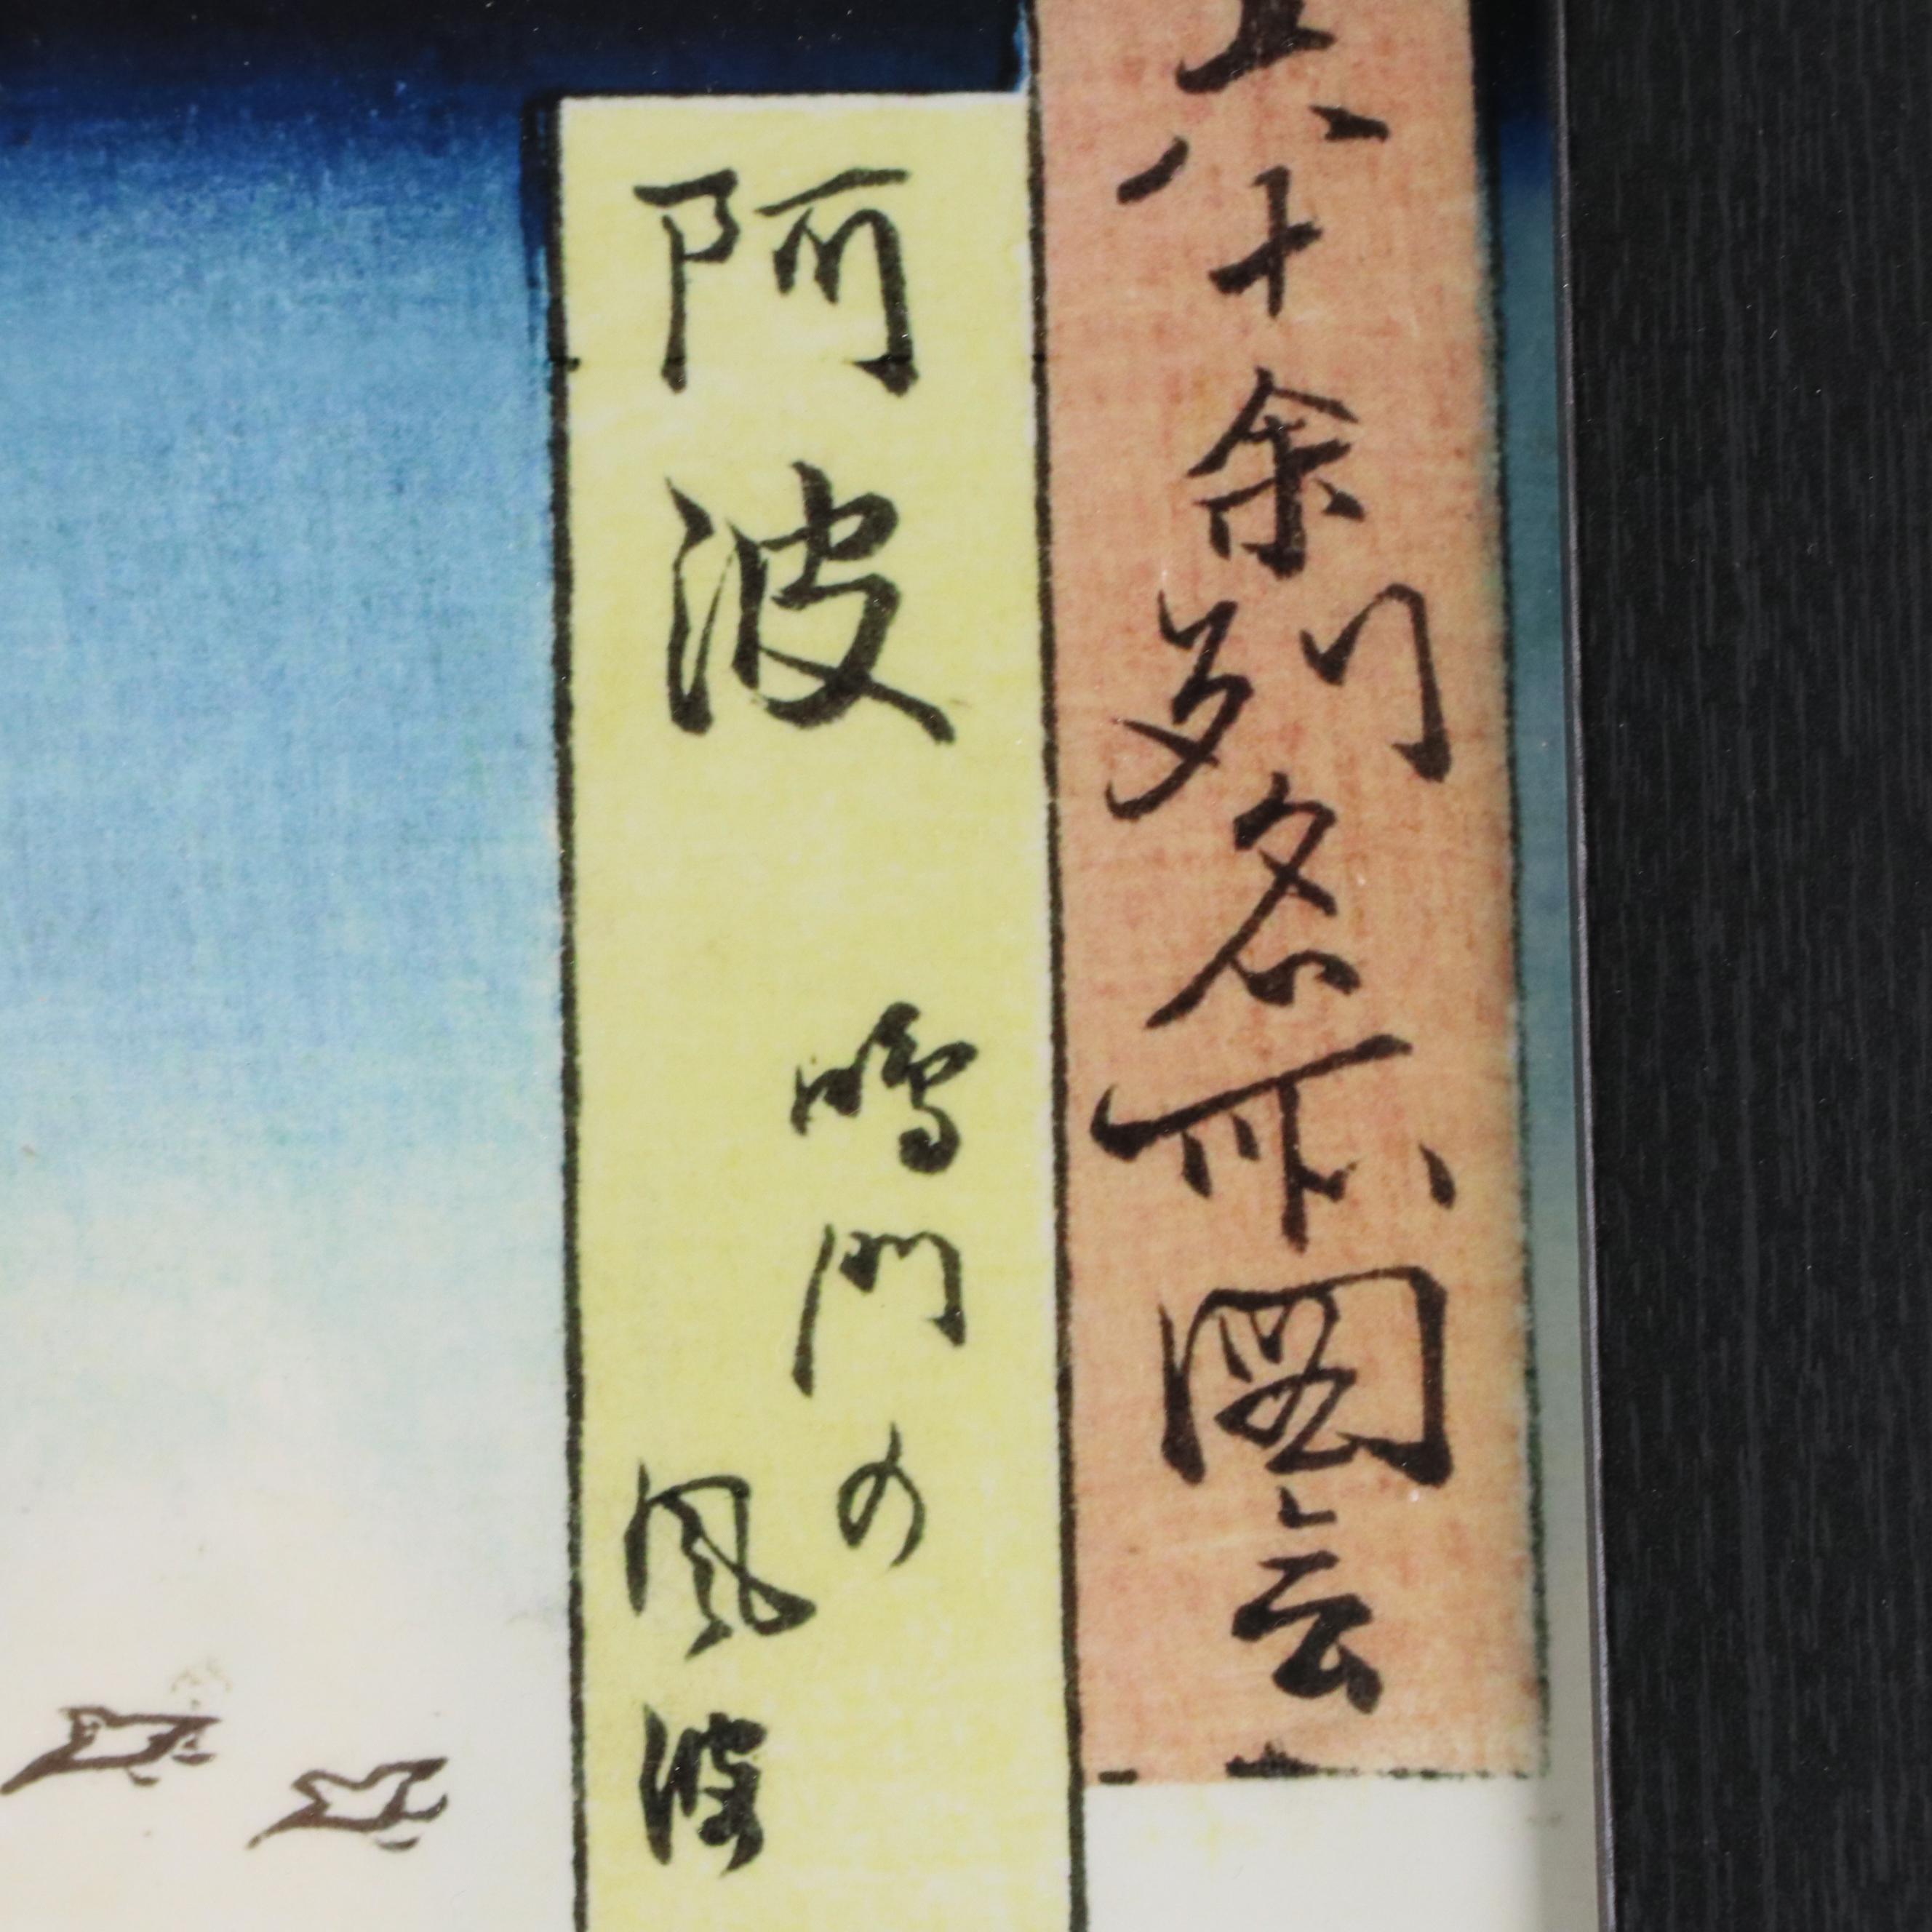 六十余州名所圖会
阿波
鳴門の
風波